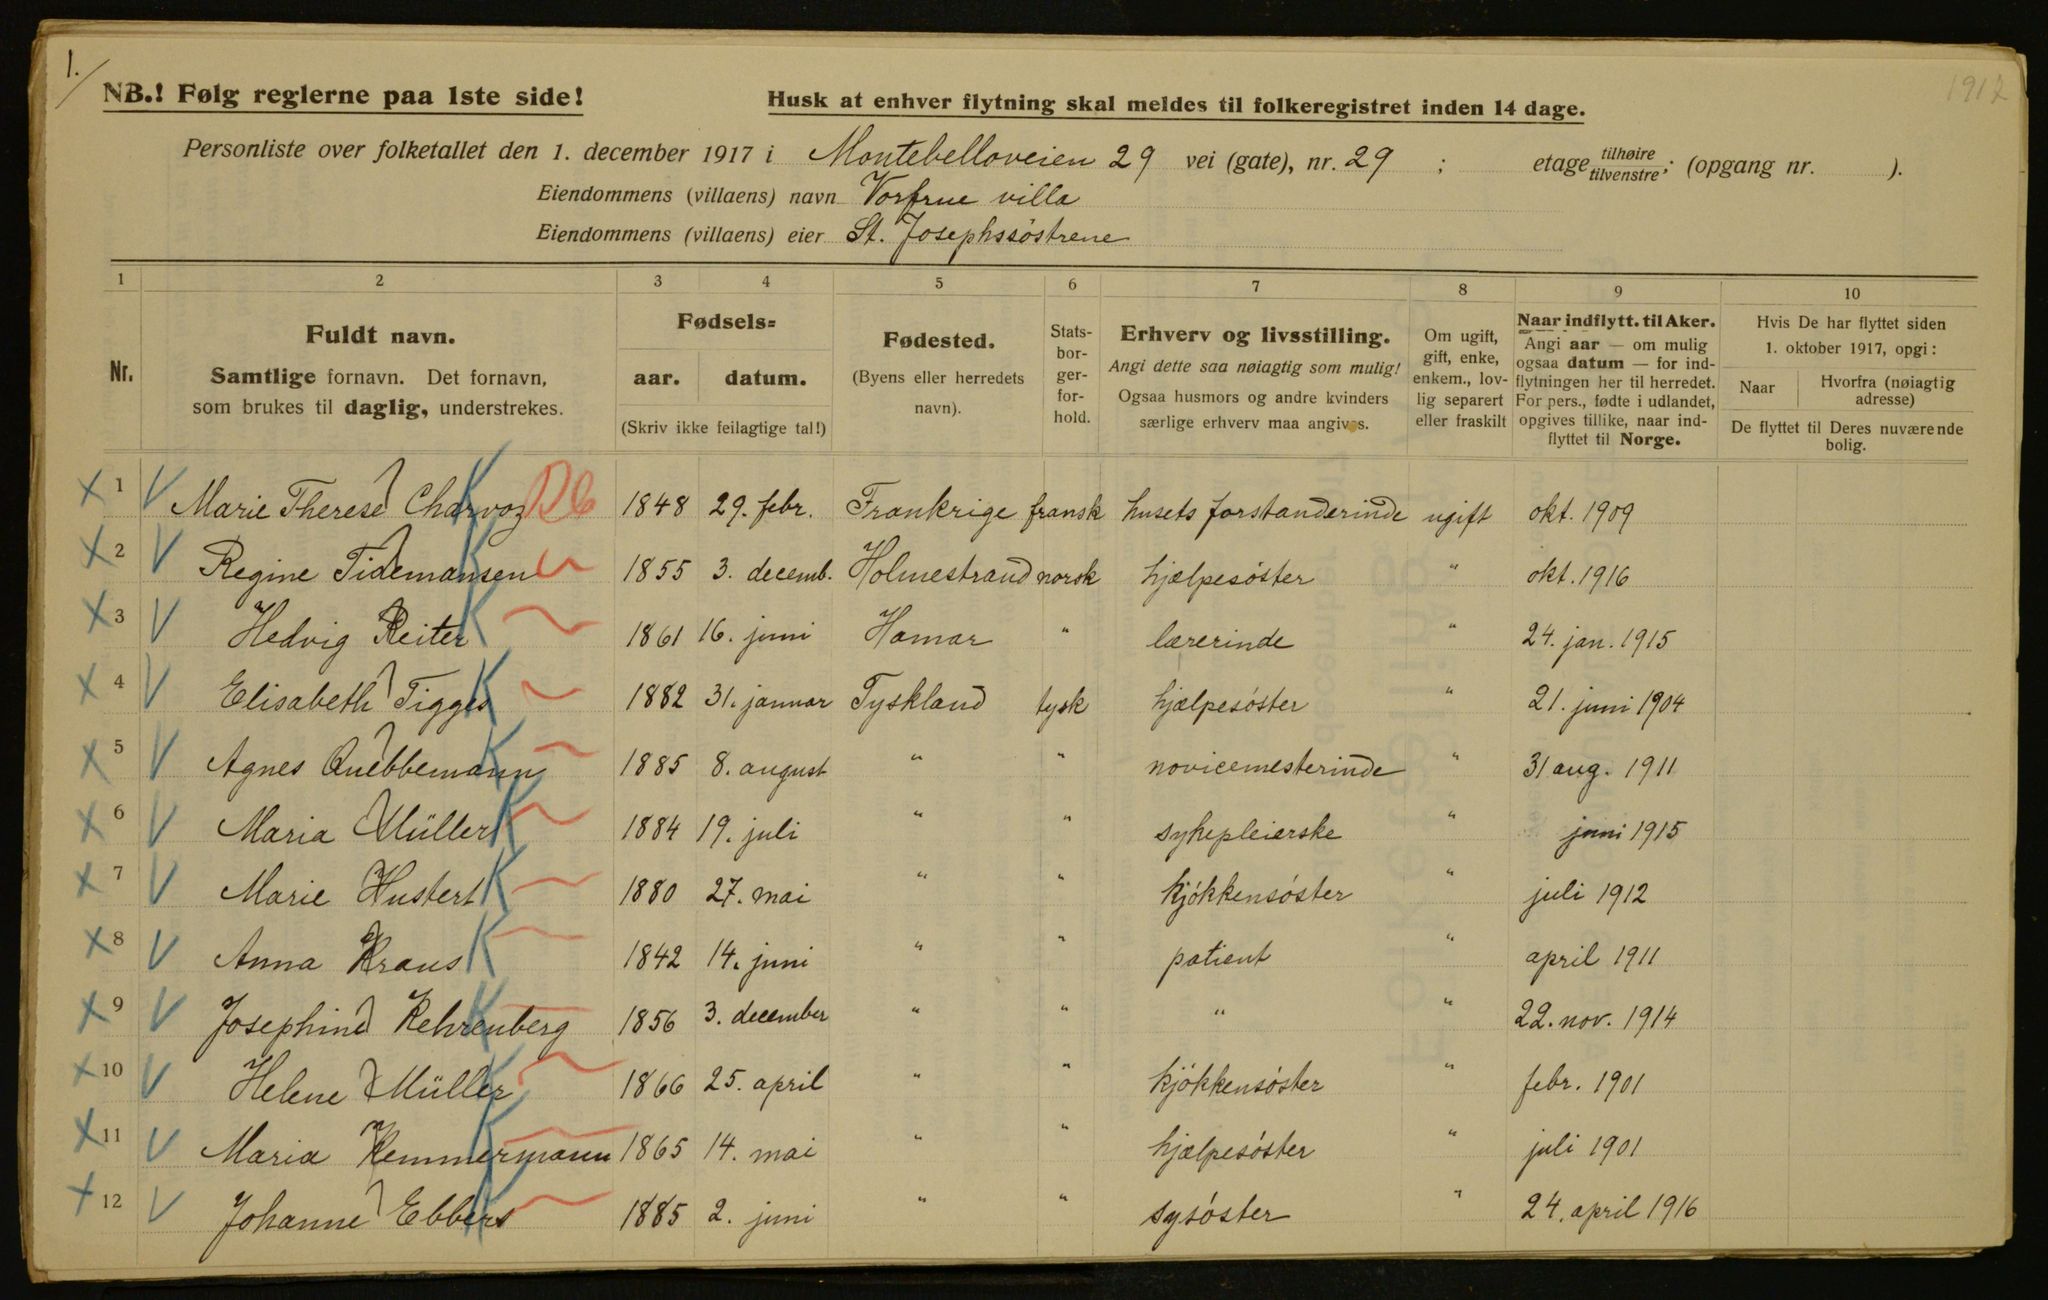 1.
1912
NB.! Følg reglerne paa 1ste side!
Husk at enhver flytning skal meldes til folkeregistret inden 14 dage.
Personliste over folketallet den 1. december 1917 i Montebelloveien 29 vei (gate), nr. 29 ; etage tilhøire tilvenstre; (opgang nr. ).
Eiendommens (villaens) navn Vorfrue villa
Eiendommens (villaens) eier St. Josephssöstrene
1 2 3 4 5 6 7 8 9 10
Nr.
Fuldt navn.
Samtlige fornavn. Det fornavn,
som brukes til daglig, understrekes.
Fødsels=
aar. datum.
(Skriv ikke feilagtige tal!)
Fødested.
(Byens eller herredets
navn).
Stats-
bor-
ger-
for-
hold.
Erhverv og livsstilling.
Angi dette saa nøiagtig som mulig!
Ogsaa husmors og andre kvinders
særlige erhverv maa angives.
Om ugift,
gift, enke,
enkem., lov-
lig separert
eller fraskilt
Naar indflytt. til Aker.
Angi aar — om mulig
ogsaa datum — for ind-
flytningen her til herredet.
For pers., fødte i udlandet,
opgives tillike, naar ind-
flyttet til Norge.
Hvis De har flyttet siden
1. oktober 1917, opgi:
Naar
Hvorfra (nøiagtig
adresse)
De flyttet til Deres nuværende
bolig.
X 1 V Marie Therese Charvoz K 1848 29. febr. Frankrige fransk husets forstanderinde ugift okt. 1909
X 2 V Regine Tidemansen K 1855 3. decemb. Holmestrand norsk hjælpesöster " okt. 1916
X 3 V Hedvig Reiter K 1861 16. juni Hamar " lærerinde " 24. jan. 1915
X 4 V Elisabeth Tigges K 1882 31. januar Tyskland tysk hjælpesöster " 21. juni 1904
X 5 V Agnes Quebbemann K 1885 8. august " " novicemesterinde " 31 aug. 1911
X 6 V Maria Müller K 1884 19. juli " " sykepleierske " juni 1915
X 7 V Marie Hustert K 1880 27. mai " " kjökkensöster " juli 1912
X 8 V Anna Kraus K 1842 14. juni " " patient " april 1911
X 9 V Josephine Kehrenberg K 1856 3. december " " " " 22. nov. 1914
X 10 V Helene Müller K 1866 25. april " " kjökkensöster " febr. 1901
X 11 V Maria Kemmermann K 1865 14. mai " " hjælpesöster " juli 1901
X 12 V Johanne Ebbers K 1885 2. juni " " sysöster " 24. april 1916